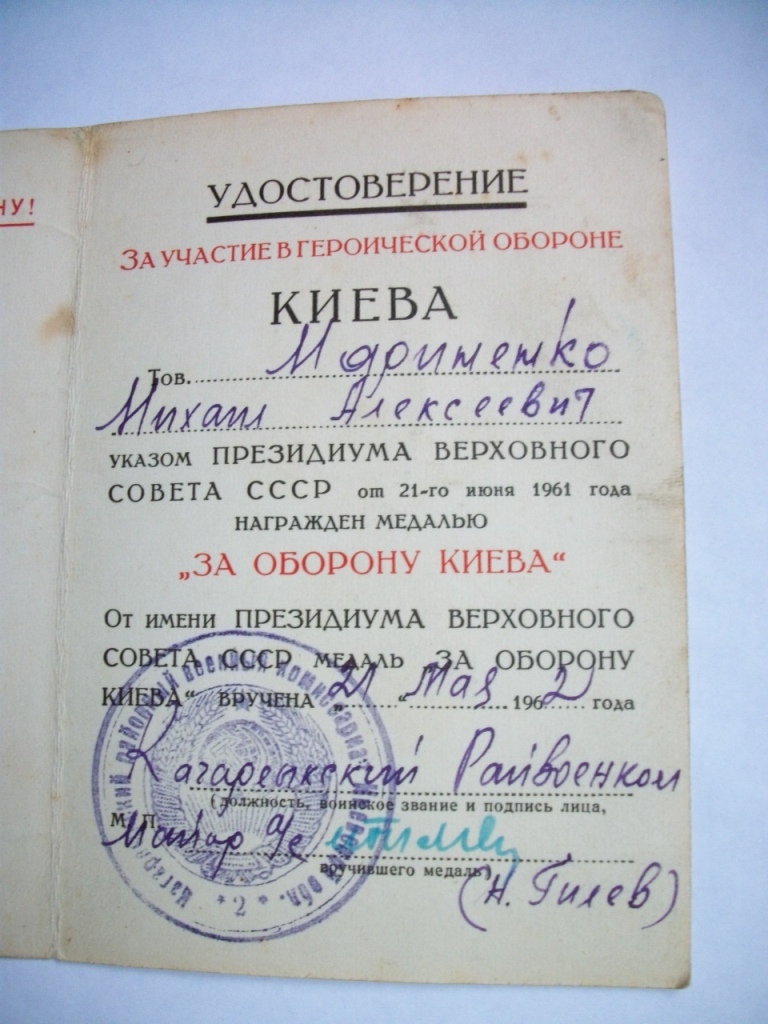 НУ!
УДОСТОВЕРЕНИЕ
ЗА УЧАСТИЕ В ГЕРОИЧЕСКОЙ ОБОРОНЕ
КИЕВА
Тов. Мариненко
Михаил Алексеевич
УКАЗОМ ПРЕЗИДИУМА ВЕРХОВНОГО
СОВЕТА СССР от 21-го июня 1961 года
НАГРАЖДЕН МЕДАЛЬЮ
„ЗА ОБОРОНУ КИЕВА“
От имени ПРЕЗИДИУМА ВЕРХОВНОГО
СОВЕТА СССР МЕДАЛЬ „ЗА ОБОРОНУ
КИЕВА“ ВРУЧЕНА „21“ Мая 1962 года
Кагарлыкский Райвоенком
(должность, воинское звание и подпись лица,
М. П. Майор
вручившего медаль)
(Н. Гилев)
районный военный комиссариат Киевской обл.
* 2 *